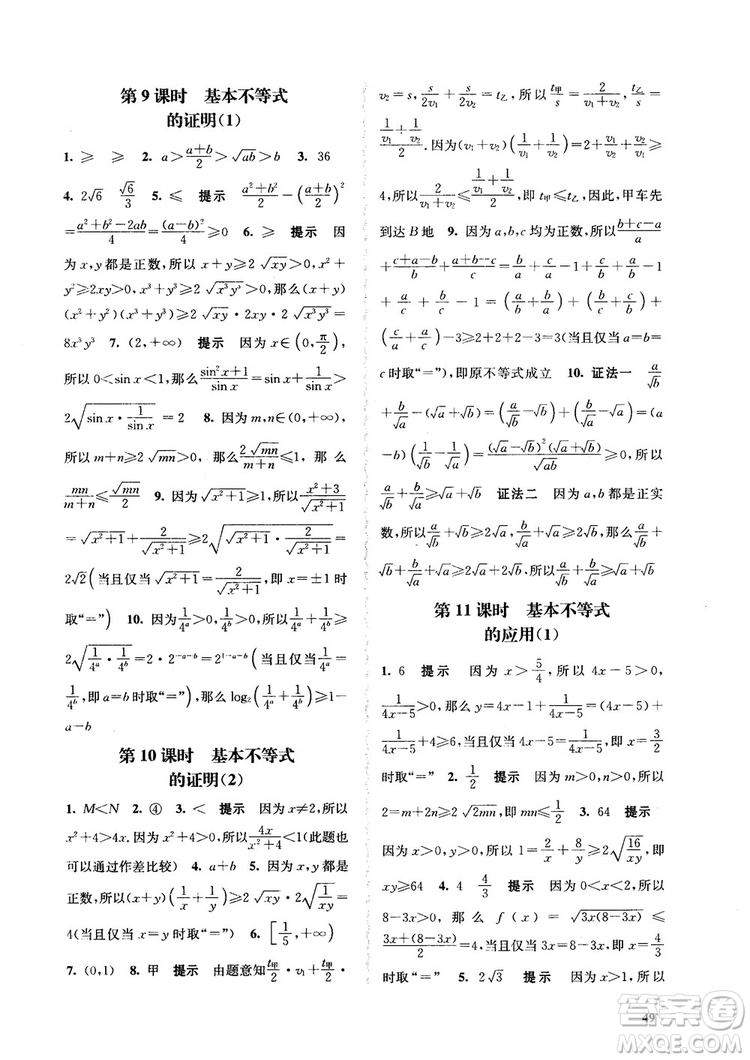 第9课时　基本不等式
的证明(1)
1. ≥　≥　2. a>(a+b)/2>√(ab)>b　3. 36
4. 2√6　√6/3　5. ≤　提示　(a²+b²)/2-((a+b)/2)²
=(a²+b²-2ab)/4=(a-b)²/4≥0　6. ≥　提示　因
为x,y都是正数,所以x+y≥2√(xy)>0,x²+
y²≥2xy>0,x³+y³≥2√(x³y³)>0,那么(x+y)
(x²+y²)(x³+y³)≥2√(xy)·2xy·2√(x³y³)=
8x³y³　7. (2,+∞)　提示　因为x∈(0,π/2),
所以0<sin x<1,那么(sin²x+1)/sin x=sin x+1/sin x>
2√(sin x·1/sin x)=2　8. 因为m,n∈(0,+∞),
所以m+n≥2√(mn),那么2√(mn)/(m+n)≤1,所以
mn/(m+n)≤√(mn)/2　9. 因为√(x²+1)≥1,所以(x²+3)/√(x²+1)
=√(x²+1)+2/√(x²+1)≥2√(√(x²+1)·2/√(x²+1))=
2√2(当且仅当√(x²+1)=2/√(x²+1),即x=±1时
取“=”)　10. 因为1/4ᵃ>0,1/4ᵇ>0,所以1/4ᵃ+1/4ᵇ≥
2√(1/4ᵃ·1/4ᵇ)=2·2⁻ᵃ⁻ᵇ=2¹⁻ᵃ⁻ᵇ(当且仅当1/4ᵃ=
1/4ᵇ,即a=b时取“=”),那么log₂(1/4ᵃ+1/4ᵇ)≥1-
a-b
第10课时　基本不等式
的证明(2)
1. M<N　2. ④　3. <　提示　因为x≠2,所以
x²+4>4x.因为x²+4>0,所以4x/(x²+4)<1(此题也
可以通过作差比较)　4. a+b　5. 因为x,y都是
正数,所以(x+y)(1/x+1/y)≥2√(xy)·2√(1/x·1/y)=
4(当且仅当x=y时取“=”)　6. [1/5,+∞)
7. (0,1)　8. 甲　提示　由题意知t甲/2·v₁+t甲/2·
v₂=s,s/2v₁+s/2v₂=t乙,所以t甲=2s/(v₁+v₂),t乙=
s·(1/v₁+1/v₂)/2.因为(v₁+v₂)(1/v₁+1/v₂)≥
4,所以2/(v₁+v₂)≤(1/v₁+1/v₂)/2,即t甲≤t乙,因此,甲车先
到达B地　9. 因为a,b,c均为正数,所以(b+c-a)/a
+(c+a-b)/b+(a+b-c)/c=b/a+c/a-1+c/b+a/b-1+
a/c+b/c-1=(b/a+a/b)+(c/b+b/c)+
(c/a+a/c)-3≥2+2+2-3=3(当且仅当a=b=
c时取“=”),即原不等式成立　10. 证法一　a/√b
+b/√a-(√a+√b)=(a/√b-√b)+(b/√a-√a)=(a
-b)(1/√b-1/√a)=(√a-√b)²(√a+√b)/√(ab)≥0,所以
a/√b+b/√a≥√a+√b　证法二　因为a,b都是正实
数,所以a/√b+√b≥2√a,b/√a+√a≥2√b,那么
a/√b+√b+b/√a+√a≥2√a+2√b,所以a/√b+b/√a≥√a+√b
第11课时　基本不等式
的应用(1)
1. 6　提示　因为x>5/4,所以4x-5>0,
1/(4x-5)>0,那么y=4x-1+1/(4x-5)=4x-5+
1/(4x-5)+4≥6,当且仅当4x-5=1/(4x-5),即x=3/2
时取“=”　2. 1/2　提示　因为m>0,n>0,所以
2=m+2n≥2√(2mn),即mn≤1/2　3. 64　提示
因为x>0,y>0,所以1=2/x+8/y≥2√(16/xy),即
xy≥64　4. 4　4/3　提示　因为0<x<2,所以
8-3x>0,那么f(x)=√(3x(8-3x))≤
(3x+(8-3x))/2=4,当且仅当3x=8-3x,即x=4/3
时取“=”　5. 2√3　提示　因为x>0,所以
49
答案圈
MXQE.COM